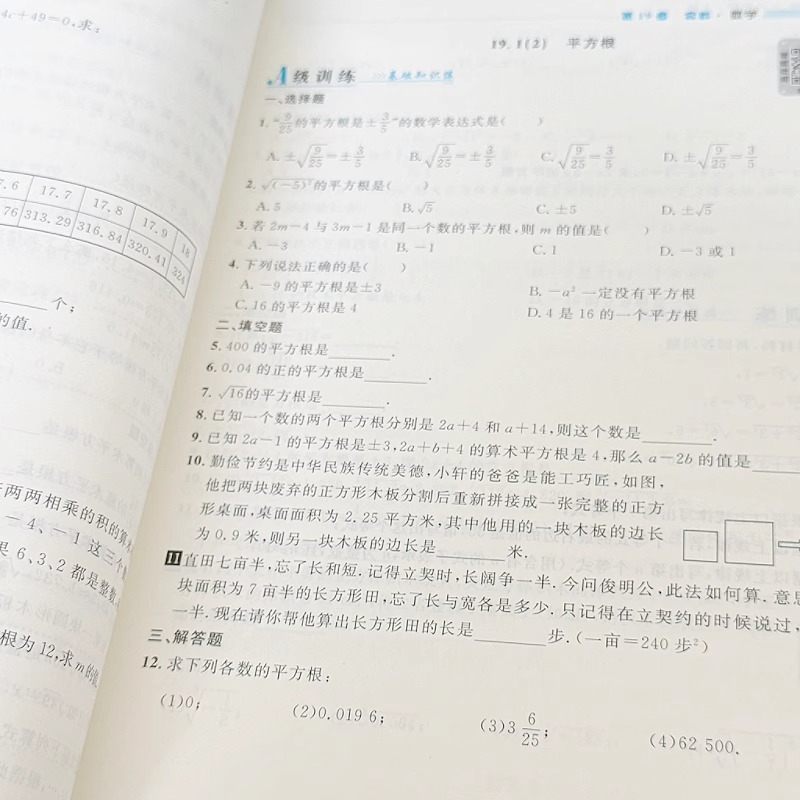 4c+49=0,求:
17.7
17.8
17.9
18
313.29
316.84
320.41
324
个;
的值.
两两相乘的积的算
-4、-1 这三个
果 6、3、2 都是整数
根为 12,求 m 的值
19.1(2) 平方根
A 级训练 >>>基础知识练
一、选择题
1. “9/25的平方根是±3/5”的数学表达式是( )
A. ±√(9/25)=±3/5 B. √(9/25)=±3/5 C. √(9/25)=3/5 D. ±√(9/25)=3/5
2. √(-5)²的平方根是( )
A. 5 B. √5 C. ±5 D. ±√5
3. 若 2m-4 与 3m-1 是同一个数的平方根,则 m 的值是( )
A. -3 B. -1 C. 1 D. -3 或 1
4. 下列说法正确的是( )
A. -9 的平方根是±3 B. -a² 一定没有平方根
C. 16 的平方根是 4 D. 4 是 16 的一个平方根
二、填空题
5. 400 的平方根是______.
6. 0.04 的正的平方根是______.
7. √16的平方根是______.
8. 已知一个数的两个平方根分别是 2a+4 和 a+14,则这个数是______.
9. 已知 2a-1 的平方根是±3,2a+b+4 的算术平方根是 4,那么 a-2b 的值是______
10. 勤俭节约是中华民族传统美德,小轩的爸爸是能工巧匠,如图,
他把两块废弃的正方形木板分割后重新拼接成一张完整的正方
形桌面,桌面面积为 2.25 平方米,其中他用的一块木板的边长
为 0.9 米,则另一块木板的边长是______米.
11 直田七亩半,忘了长和短.记得立契时,长阔争一半.今问俊明公,此法如何算.意思
块面积为 7 亩半的长方形田,忘了长与宽各是多少.只记得在立契约的时候说过,
一半.现在请你帮他算出长方形田的长是______步.(一亩=240 步²)
三、解答题
12. 求下列各数的平方根:
(1)0; (2)0.019 6; (3)3 6/25; (4)62 500.